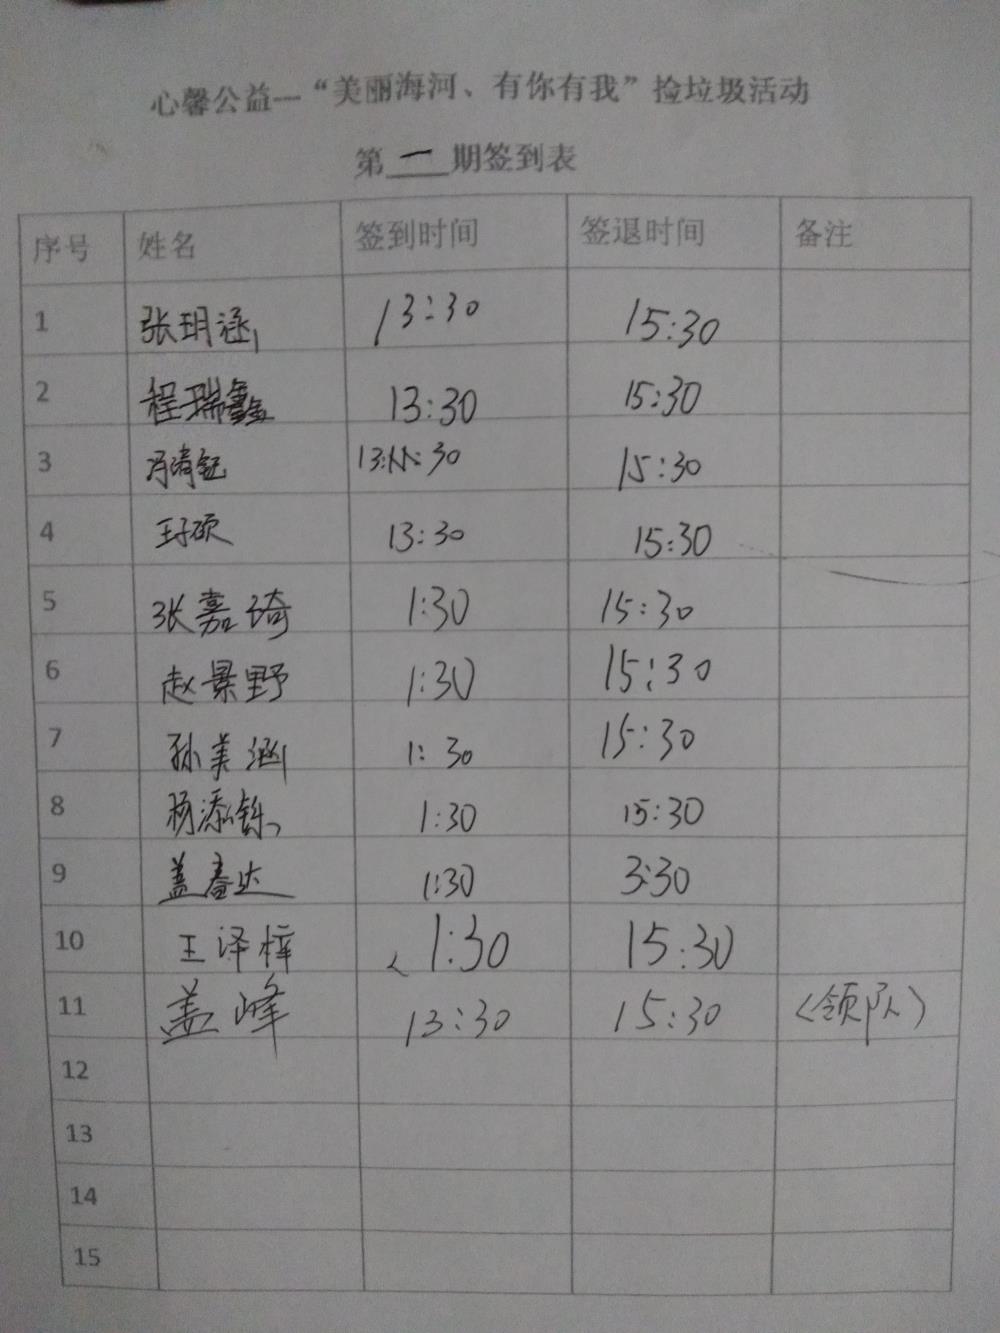 心馨公益—“美丽海河、有你有我”捡垃圾活动
第一期签到表
序号 姓名 签到时间 签退时间 备注
1 张玥涵 13:30 15:30
2 程瑞鑫 13:30 15:30
3 13: 30 15:30
4 王子硕 13:30 15:30
5 张嘉琦 1:30 15:30
6 赵景野 1:30 15:30
7 孙美涵 1:30 15:30
8 杨添铄 1:30 15:30
9 1:30 3:30
10 王泽梓 1:30 15:30
11 盖峰 13:30 15:30 （领队）
12
13
14
15